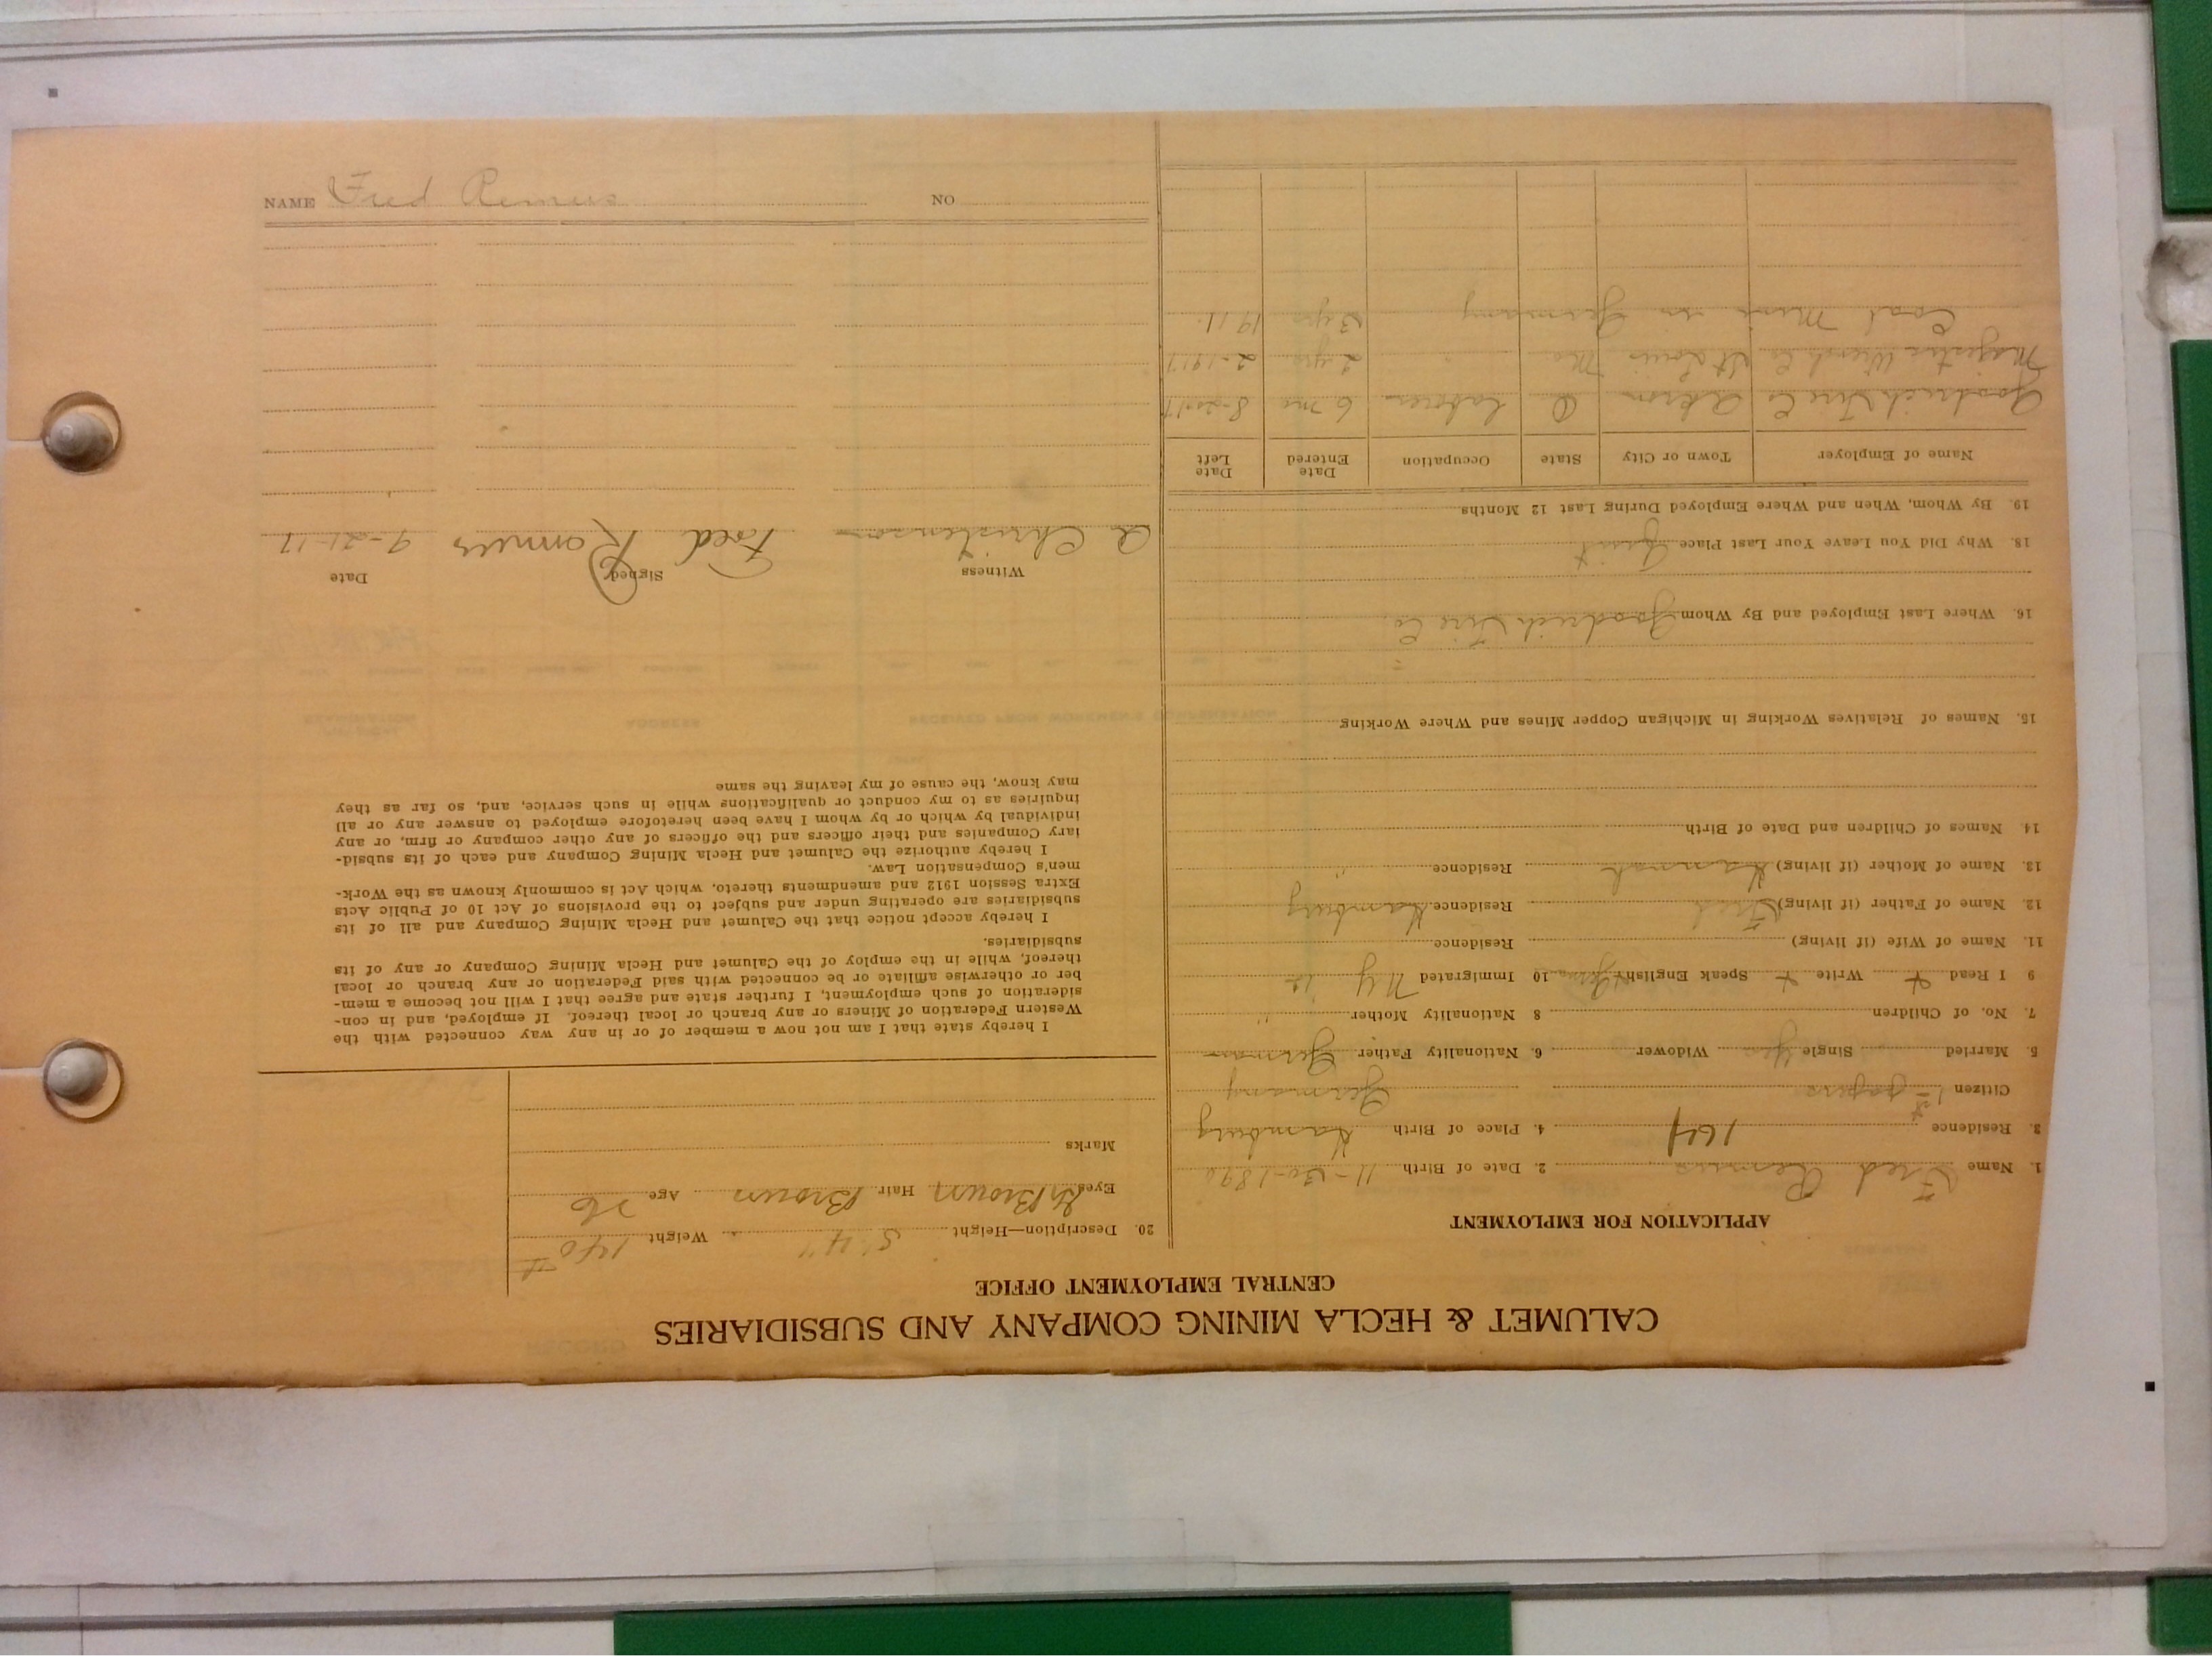 CALUMET & HECLA MINING COMPANY AND SUBSIDIARIES
CENTRAL EMPLOYMENT OFFICE
APPLICATION FOR EMPLOYMENT
1. Name Fred Remus 2. Date of Birth 11-30-1890
3. Residence 164 4. Place of Birth Hamburg
Citizen 1st papers Germany
5 Married Single Yes Widower 6. Nationality Father German
7. No. of Children 8 Nationality Mother "
9 I Read + Write + Speak English 10 Immigrated N Y
11. Name of Wife (if living) Residence
12. Name of Father (if living) Fred Residence Hamburg
13. Name of Mother (if living) Hannah Residence "
14. Names of Children and Date of Birth
15. Names of Relatives Working in Michigan Copper Mines and Where Working
16. Where Last Employed and By Whom Goodrich Tire Co.
18. Why Did You Leave Your Last Place Quit
19. By Whom, When and Where Employed During Last 12 Months
Name of Employer Town or City State Occupation Date Entered Date Left
Goodrich Tire Co Akron O Laborer 6 mo 8-20-17
Co St Louis Mo " 2 yrs 2-1917
Coal Mines in Germany 3 yrs 1911
20. Description—Height 5' 4" Weight 140
Eyes Brown Hair Brown Age 26
Marks
I hereby state that I am not now a member of or in any way connected with the
Western Federation of Miners or any branch or local thereof. If employed, and in con-
sideration of such employment, I further state and agree that I will not become a mem-
ber or otherwise affiliate or be connected with said Federation or any branch or local
thereof, while in the employ of the Calumet and Hecla Mining Company or any of its
subsidiaries.
I hereby accept notice that the Calumet and Hecla Mining Company and all of its
subsidiaries are operating under and subject to the provisions of Act 10 of Public Acts
Extra Session 1912 and amendments thereto, which Act is commonly known as the Work-
men's Compensation Law.
I hereby authorize the Calumet and Hecla Mining Company and each of its subsid-
iary Companies and their officers and the officers of any other company or firm, or any
individual by which or by whom I have been heretofore employed to answer any or all
inquiries as to my conduct or qualifications while in such service, and, so far as they
may know, the cause of my leaving the same
Witness Signed Date
A Christenson Fred Ramus 9-21-17
NAME Fred Remus NO